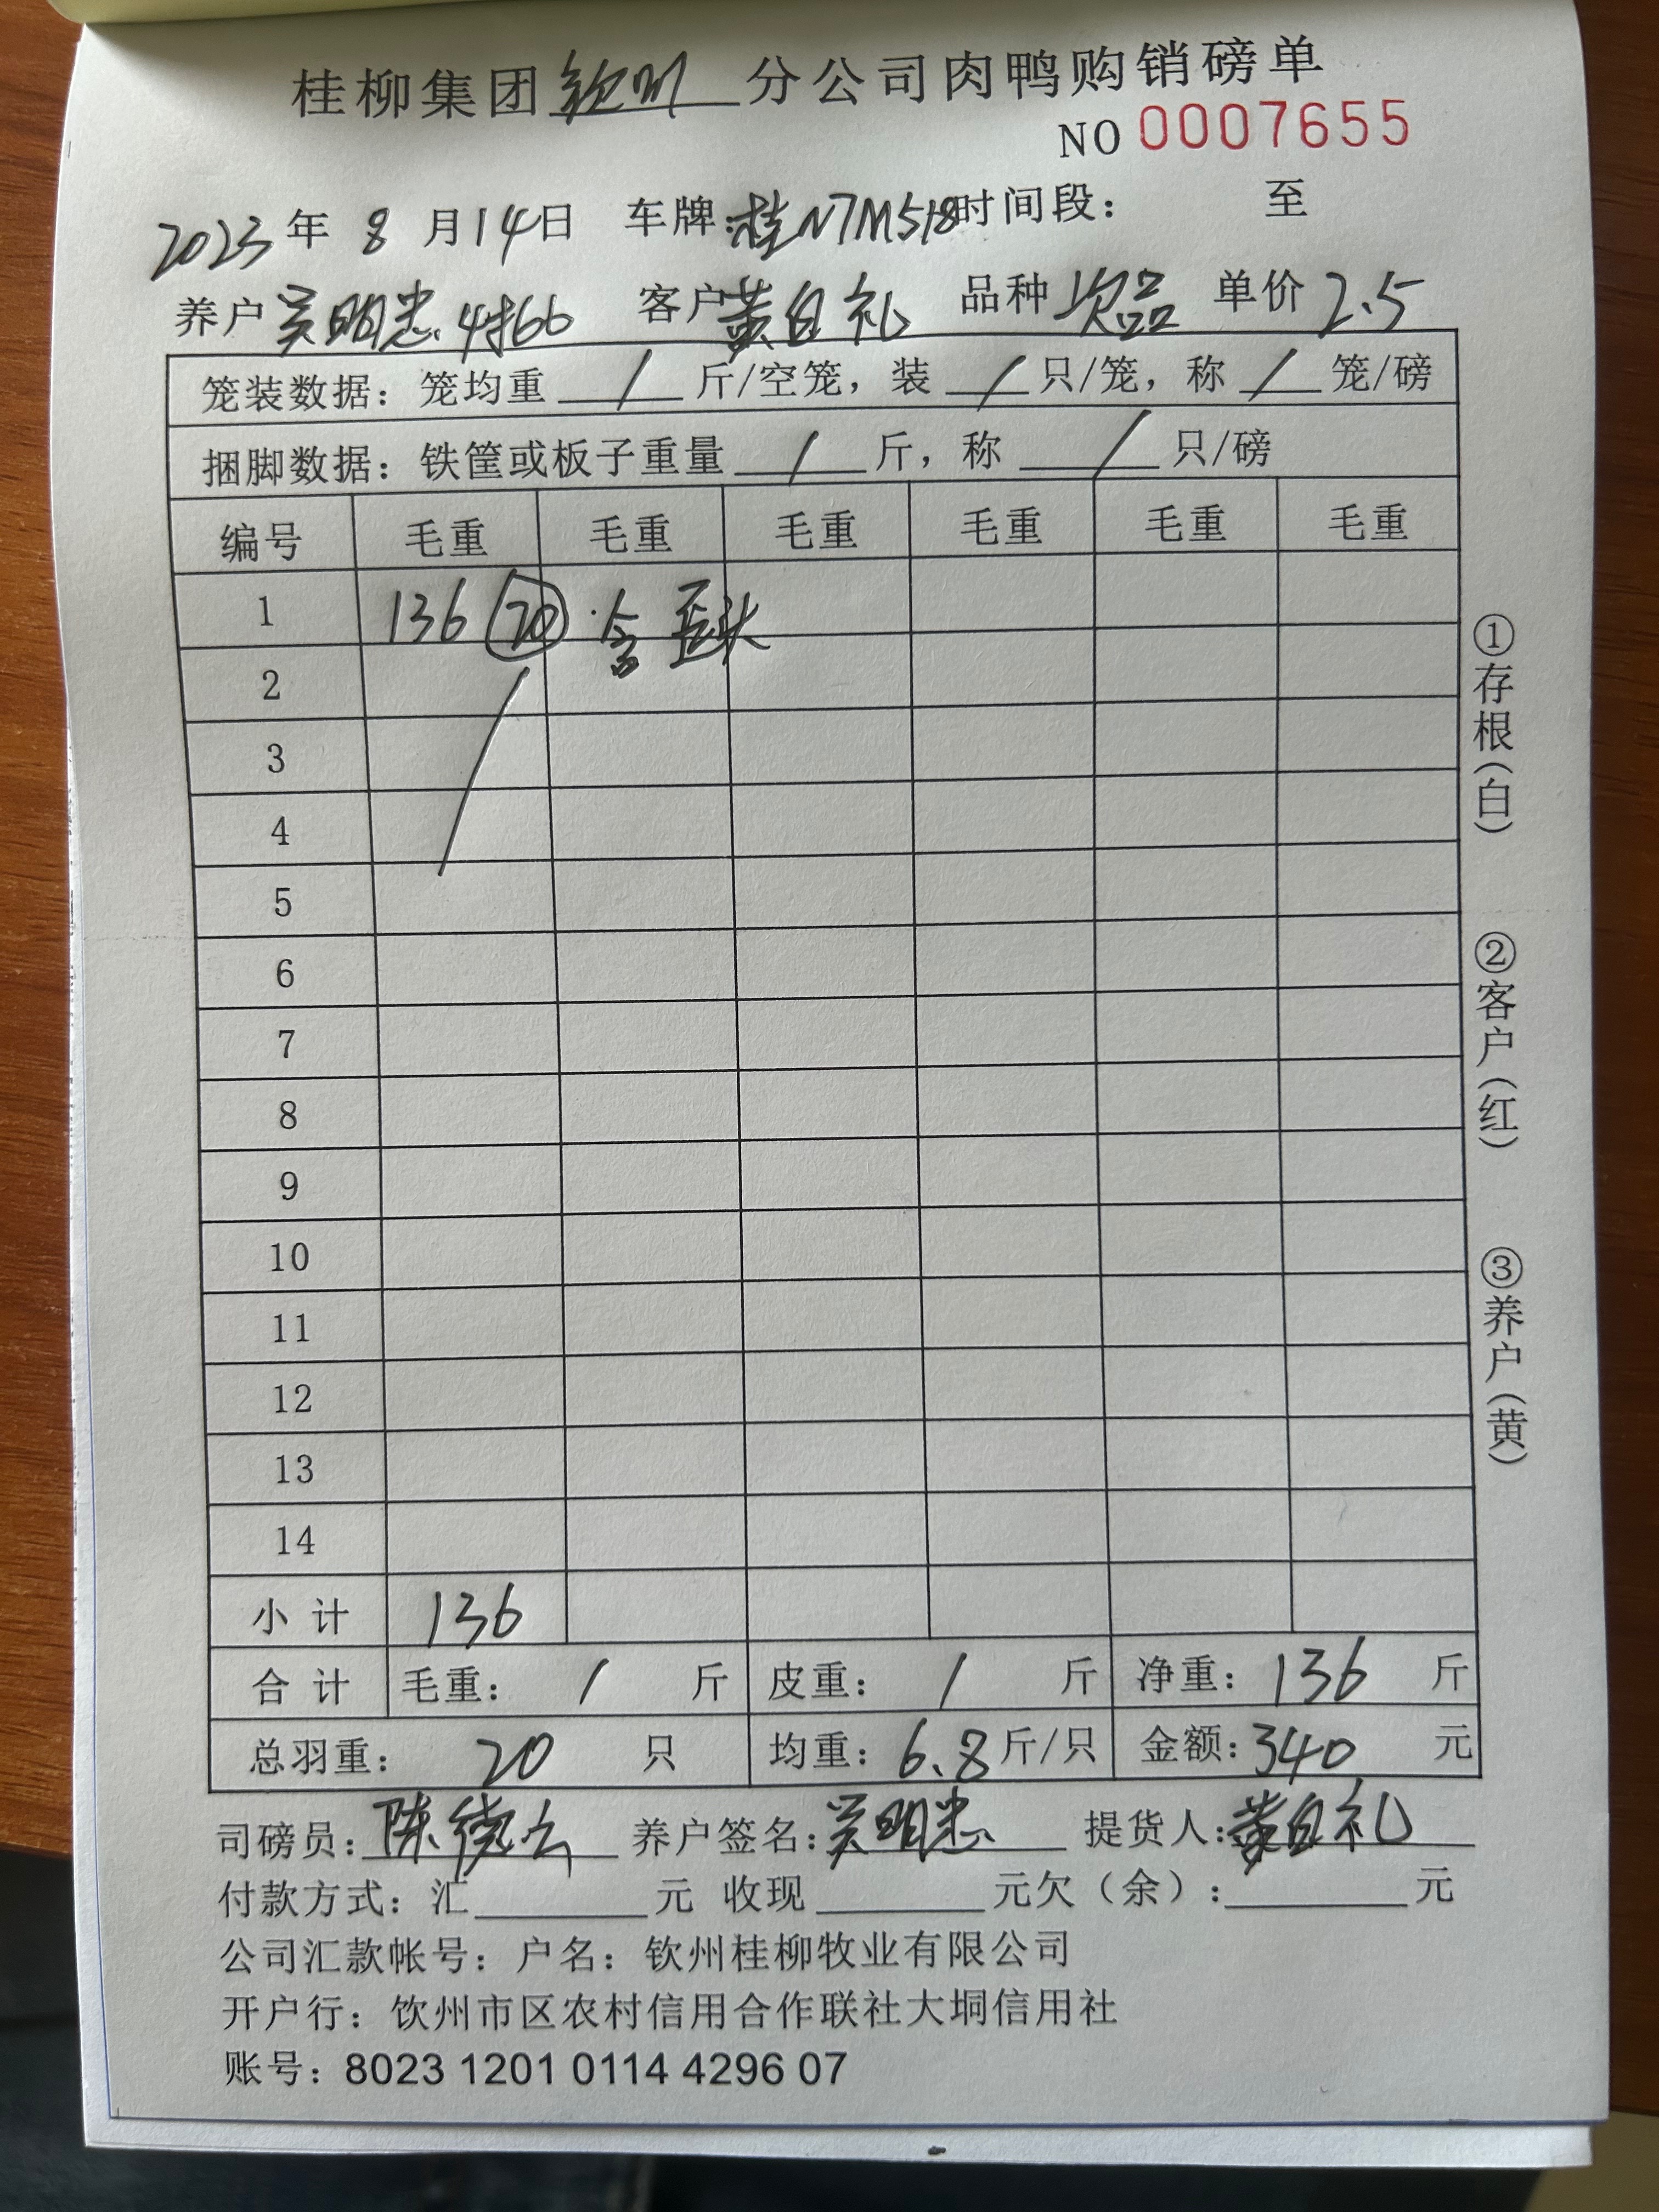 桂柳集团钦州分公司肉鸭购销磅单
NO 0007655
2023年 8 月14日 车牌:桂N7M518时间段: 至
养户吴明忠 客户黄自礼 品种次品 单价2.5
笼装数据: 笼均重 / 斤/空笼, 装 / 只/笼, 称 / 笼/磅
捆脚数据: 铁筐或板子重量 / 斤, 称 / 只/磅
编号 毛重 毛重 毛重 毛重 毛重 毛重
1 136 20 · 含 歪头
2
3
4
5
6
7
8
9
10
11
12
13
14
小 计 136
合 计 毛重: / 斤 皮重: / 斤 净重: 136 斤
总羽重: 20 只 均重: 6.8 斤/只 金额: 340 元
司磅员: 陈 养户签名: 吴明忠 提货人: 黄自礼
付款方式: 汇 元 收现 元欠 (余): 元
公司汇款帐号: 户名: 钦州桂柳牧业有限公司
开户行: 钦州市区农村信用合作联社大垌信用社
账号: 8023 1201 0114 4296 07
①存根(白)
②客户(红)
③养户(黄)